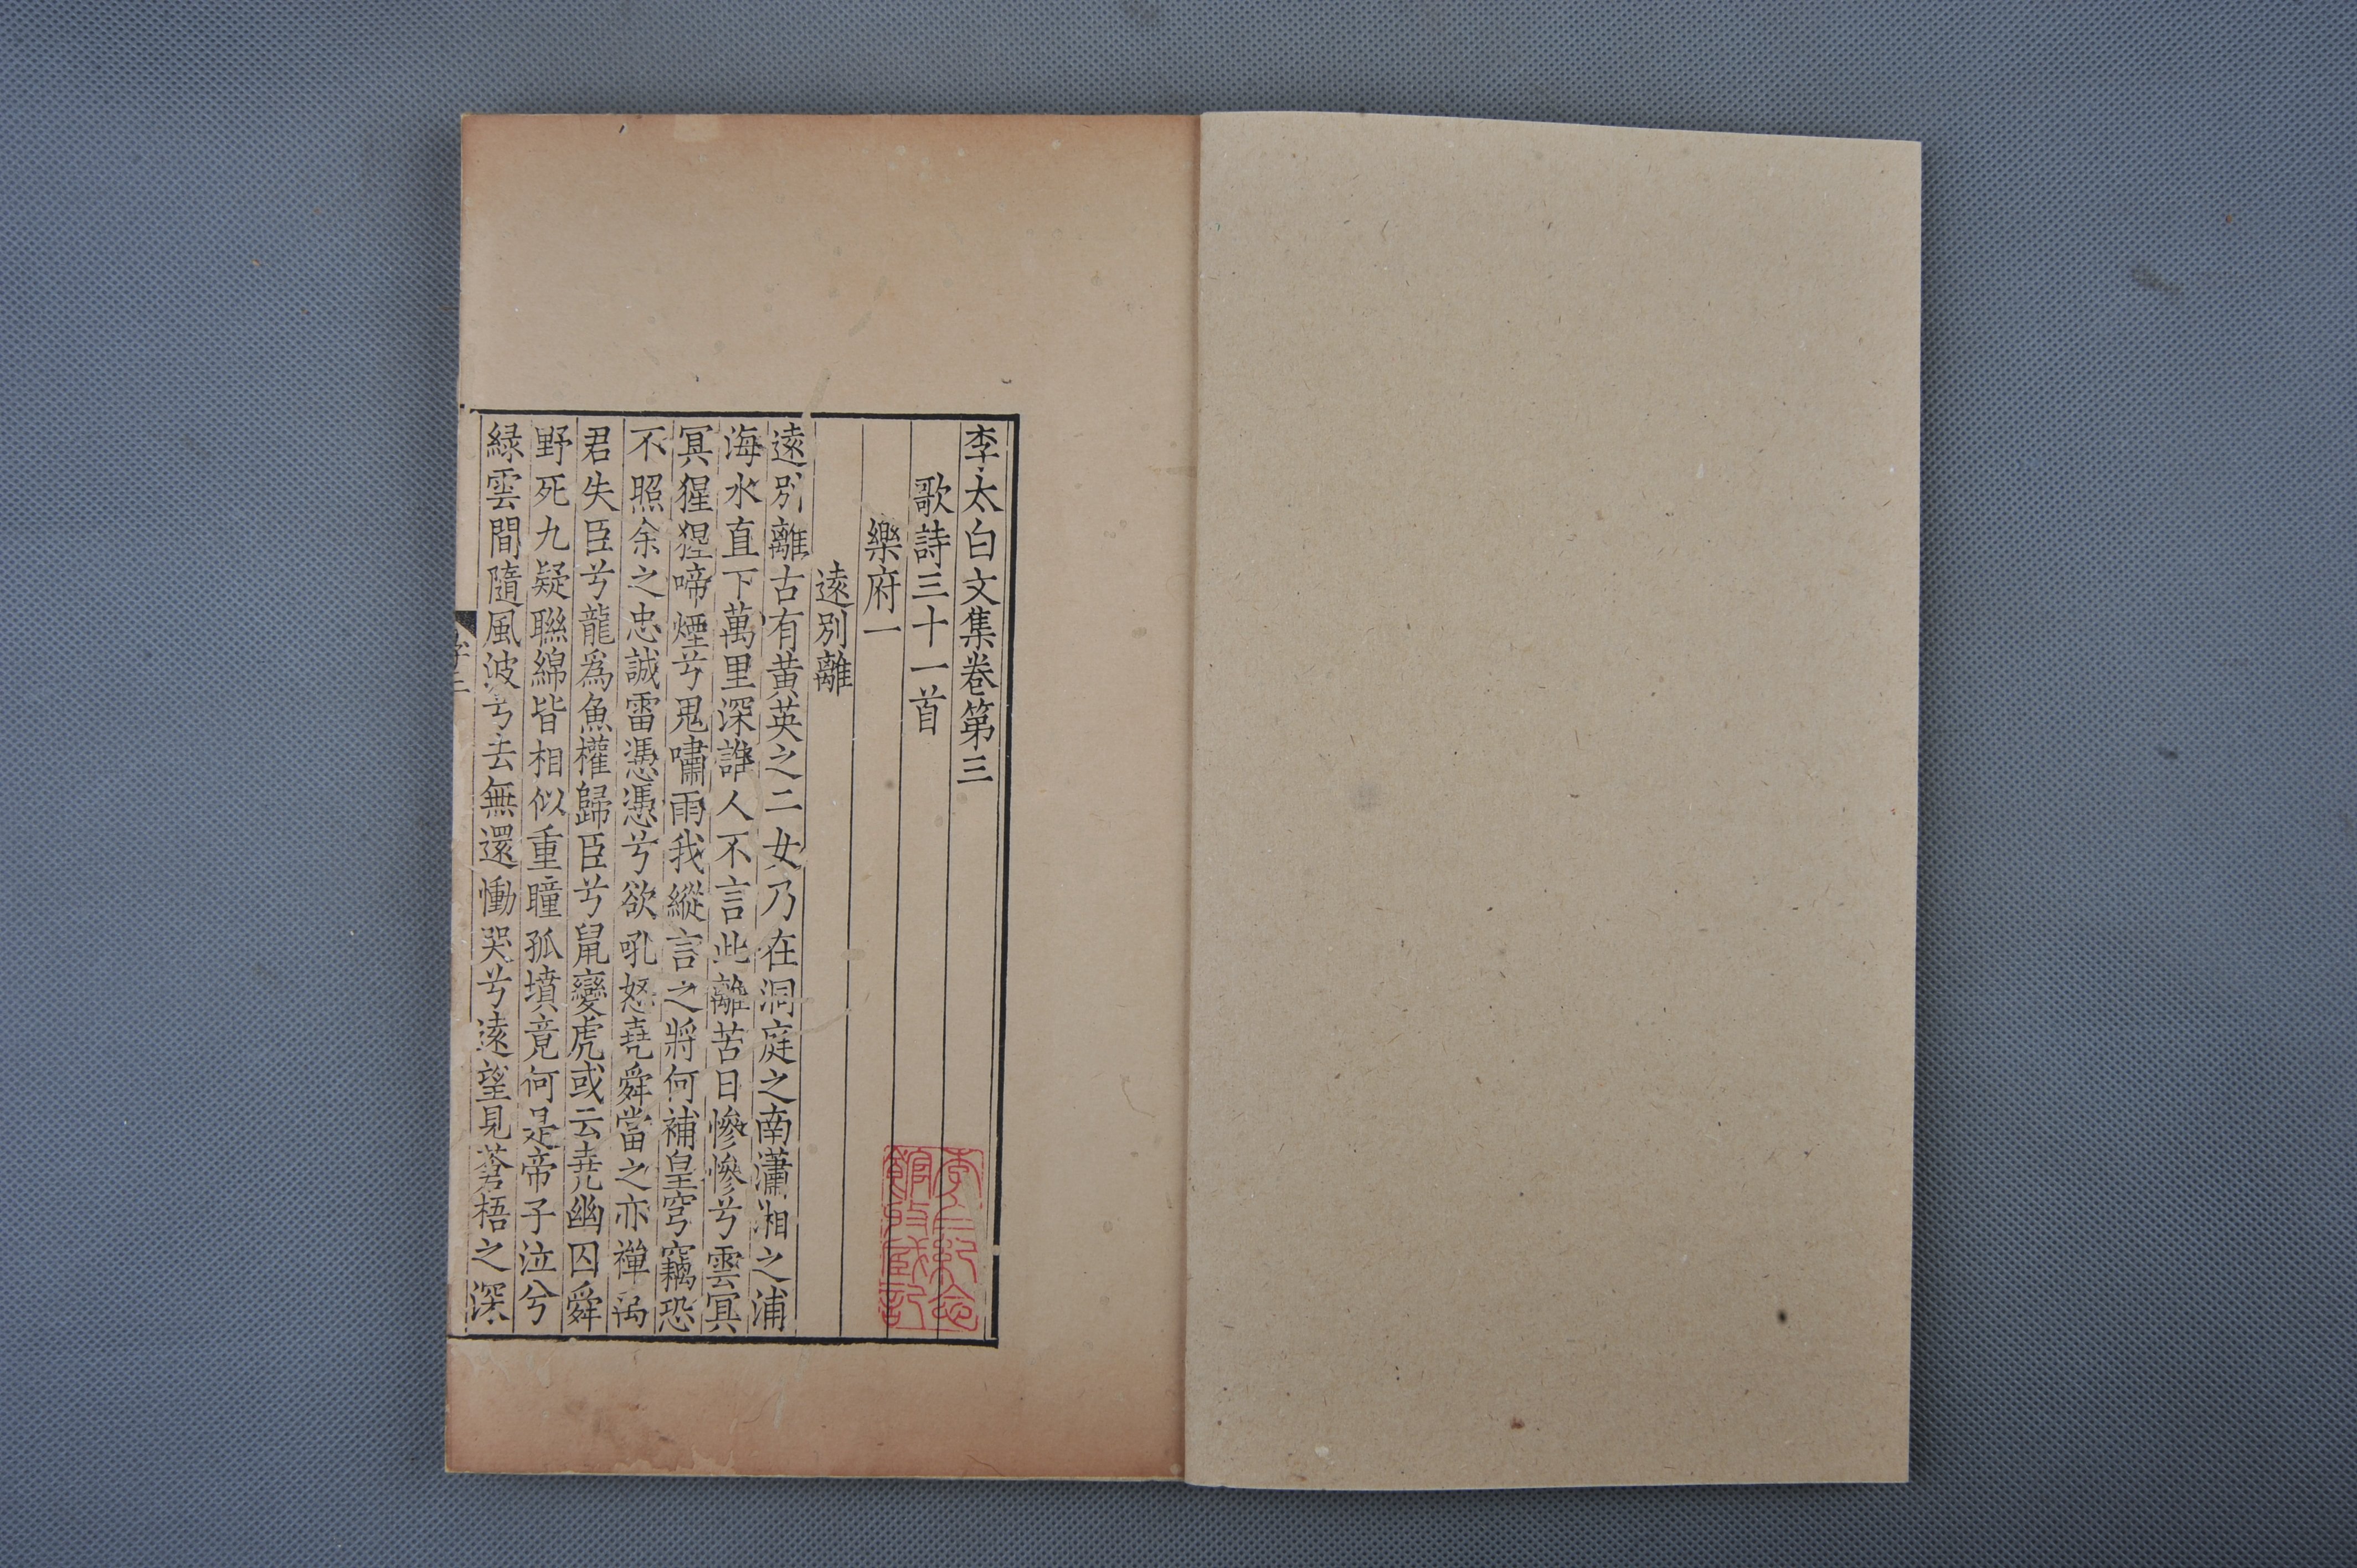 李太白文集卷第三
歌詩三十一首
樂府一
遠別離
遠別離古有黃英之二女乃在洞庭之南瀟湘之浦
海水直下萬里深誰人不言此離苦日慘慘兮雲冥
冥猩猩啼煙兮鬼嘯雨我縱言之將何補皇穹竊恐
不照余之忠誠雷憑憑兮欲吼怒堯舜當之亦禪禹
君失臣兮龍為魚權歸臣兮鼠變虎或云堯幽囚舜
野死九疑聯綿皆相似重瞳孤墳竟何是帝子泣兮
緑雲間隨風波兮去無還慟哭兮遠望見蒼梧之深
李白紀念
館收藏記